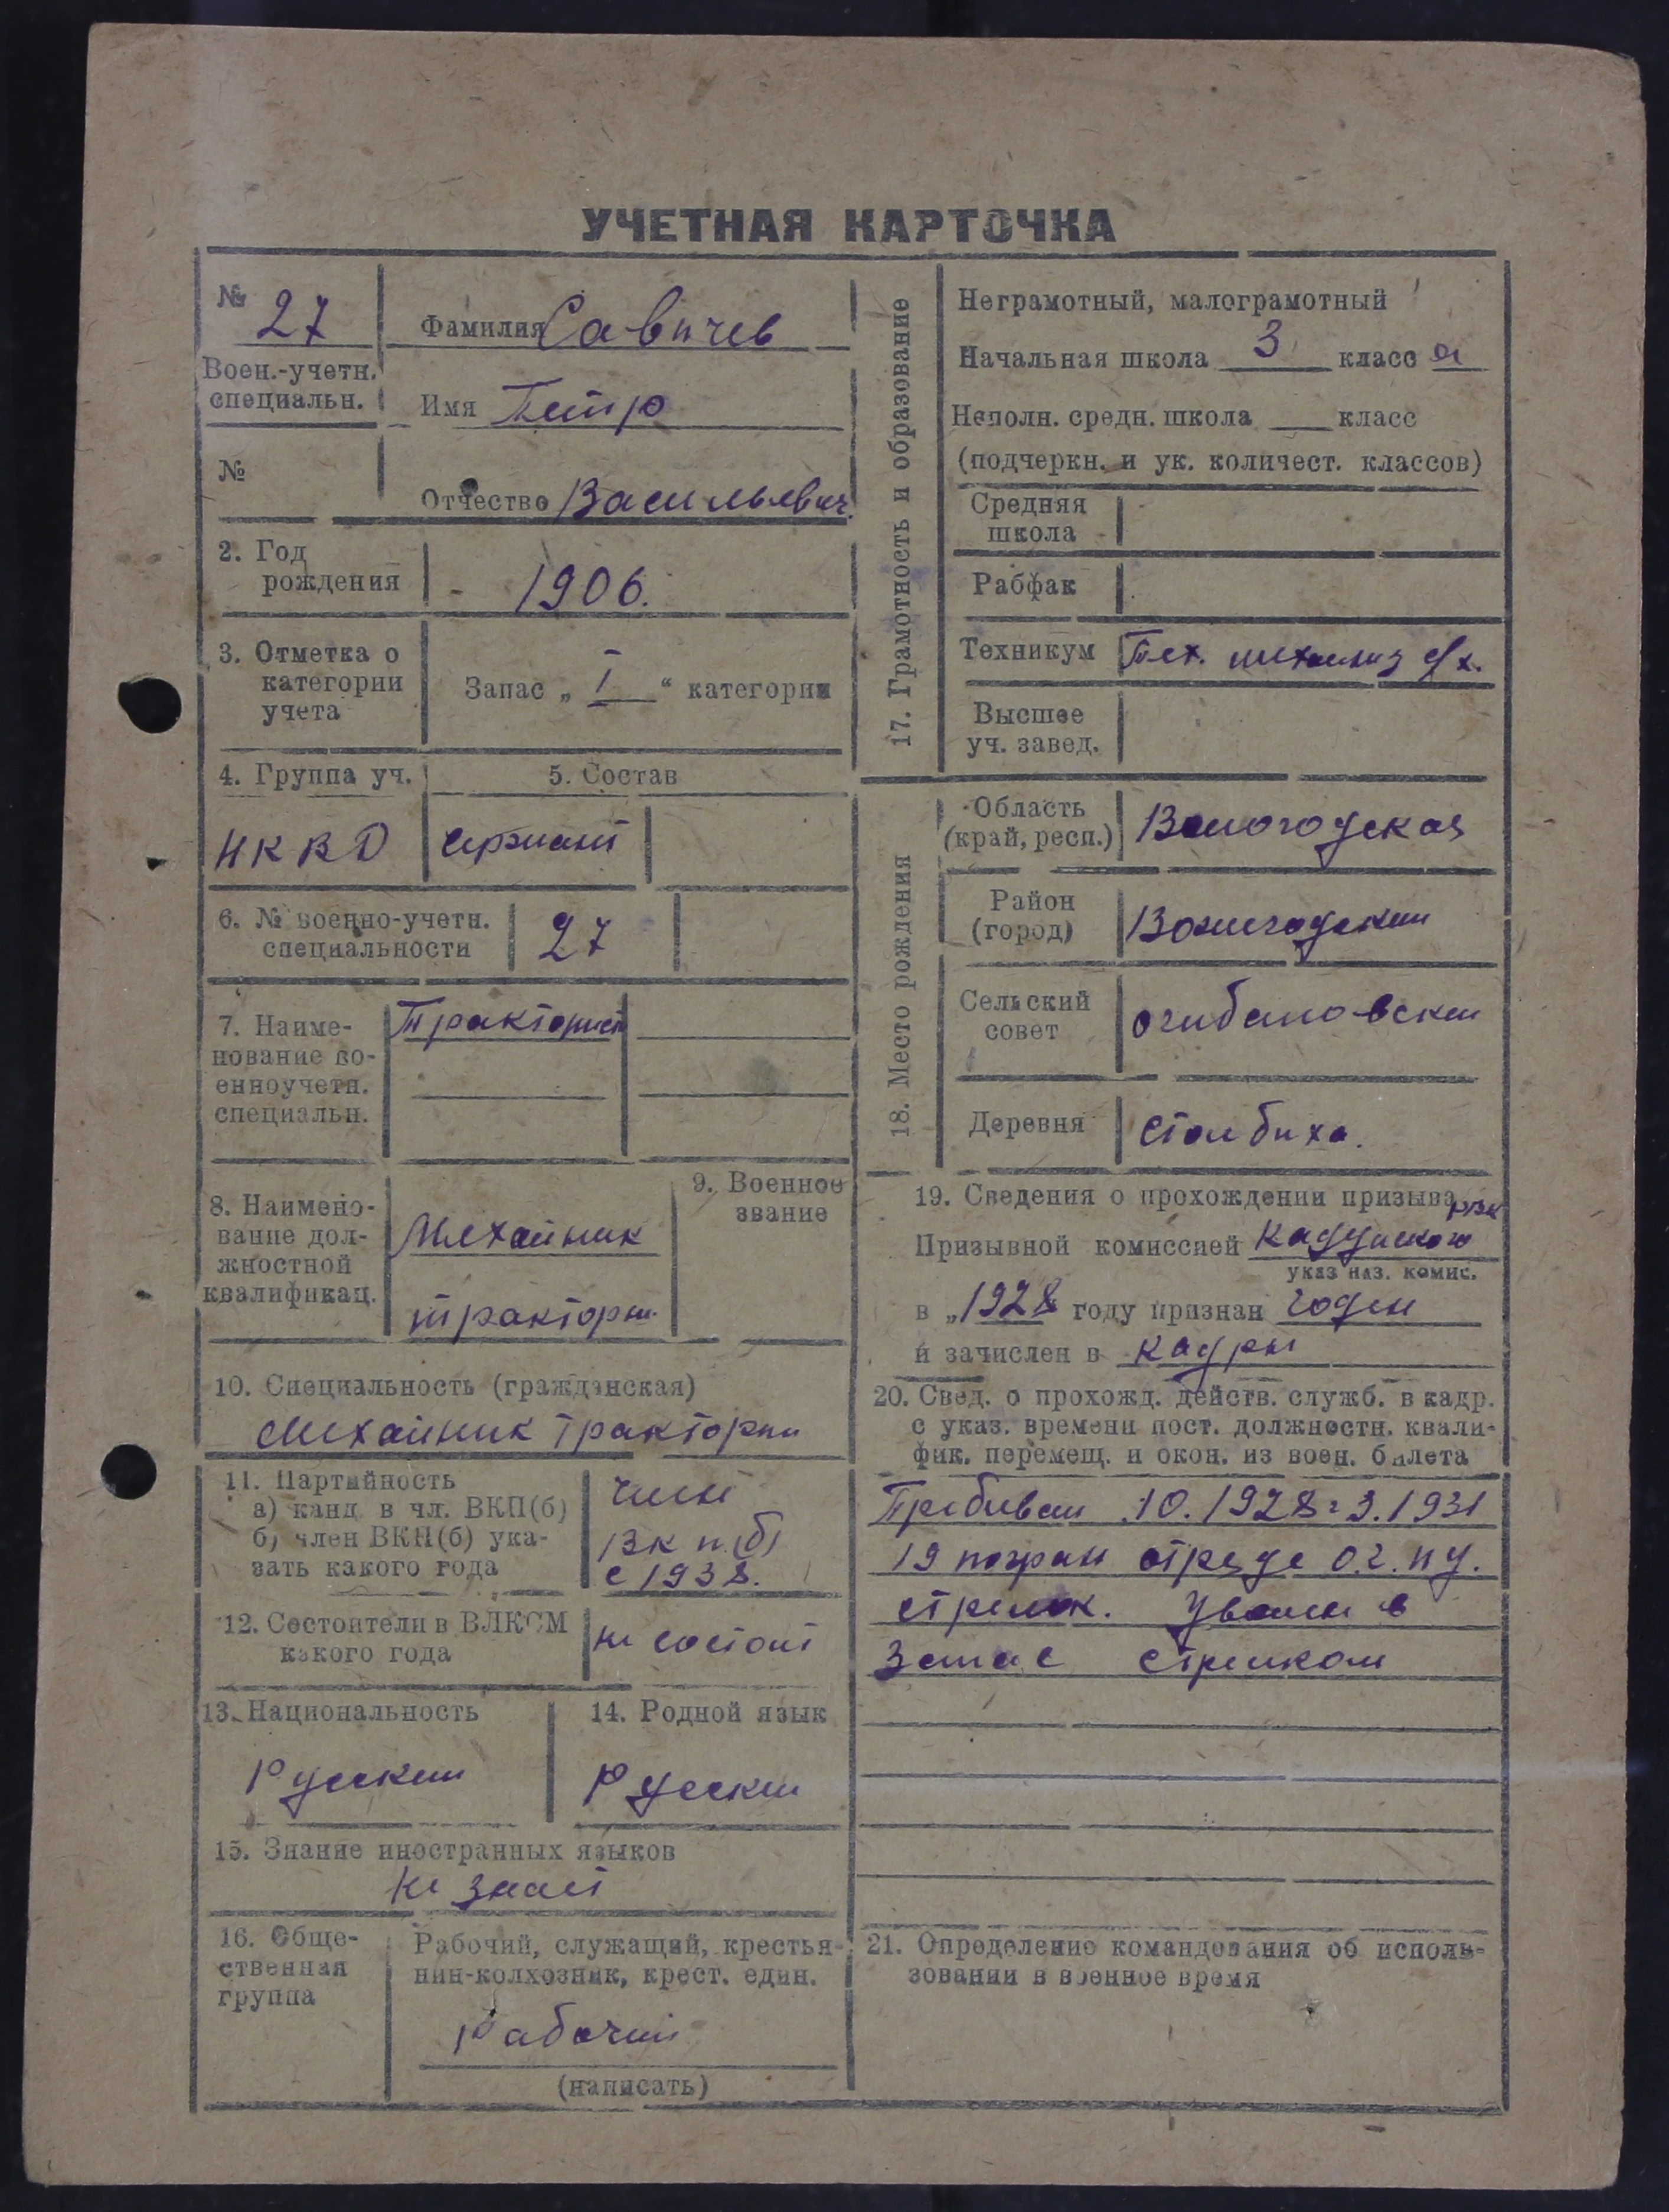 УЧЕТНАЯ КАРТОЧКА
№ 27
Воен.-учетн.
специальн.
№
Фамилия Савичев
Имя Петр
Отчество Васильевич.
2. Год
рождения
1906.
3. Отметка о
категории
учета
Запас „ I “ категории
4. Группа уч.
НКВД
5. Состав
сержант
6. № военно-учетн.
специальности
27
7. Наиме-
нование во-
енноучетн.
специальн.
Тракторист
8. Наимено-
вание дол-
жностной
квалификац.
Механик
тракторн.
9. Военное
звание
10. Специальность (гражданская)
Механик тракторн
11. Партийность
а) канд. в чл. ВКП(б)
б) член ВКП(б) ука-
зать какого года
член
ВКП(б)
с 1938.
12. Состоители в ВЛКСМ
какого года
не состоит
13. Национальность
Русский
14. Родной язык
Русский
15. Знание иностранных языков
не знает
16. Обще-
ственная
группа
Рабочий, служащий, крестья-
нин-колхозник, крест. един.
Рабочий
(написать)
17. Грамотность и образование
Неграмотный, малограмотный
Начальная школа 3 класс а
Неполн. средн. школа ___ класс
(подчеркн. и ук. количест. классов)
Средняя
школа
Рабфак
Техникум
Тех. механиз с/х.
Высшее
уч. завед.
18. Место рождения
Область
(край, респ.)
Вологодская
Район
(город)
Сельский
совет
Деревня
Столбиха.
19. Сведения о прохождении призыва
Призывной комиссией Кадуйского РВК
указ наз. комис.
в „1928 году признан годен
и зачислен в кадры
20. Свед. о прохожд. действ. служб. в кадр.
с указ. времени пост. должностн. квали-
фик. перемещ. и окон. из воен. билета
Пребывал 10.1928 г 3.1931
19 погран отряде
стрелок. Уволен в
Запас стрелком
21. Определение командования об исполь-
зовании в военное время